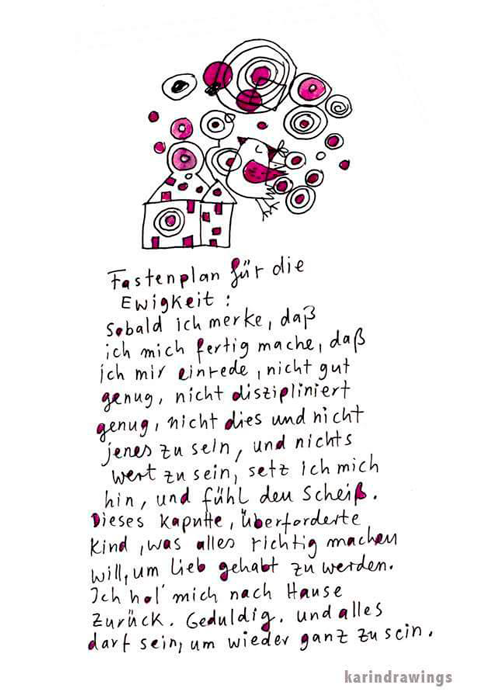 Fastenplan für die
Ewigkeit:
Sobald ich merke, daß
ich mich fertig mache, daß
ich mir einrede, nicht gut
genug, nicht diszipliniert
genug, nicht dies und nicht
jenes zu sein, und nichts
wert zu sein, setz ich mich
hin, und fühl den Scheiß.
Dieses kaputte, überforderte
Kind, was alles richtig machen
will, um lieb gehabt zu werden.
Ich hol' mich nach Hause
zurück. Geduldig. und alles
darf sein, um wieder ganz zu sein.
karindrawings